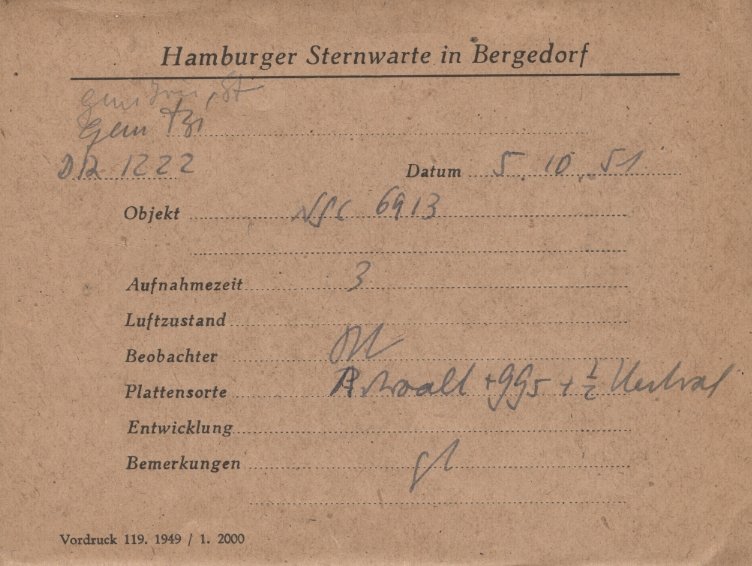 Hamburger Sternwarte in Bergedorf
gem
DR 1222 Datum 5. 10. 51
Objekt NGC 6913
Aufnahmezeit 3
Luftzustand
Beobachter
Plattensorte +GG5 + 1/2
Entwicklung
Bemerkungen
Vordruck 119. 1949 / 1. 2000